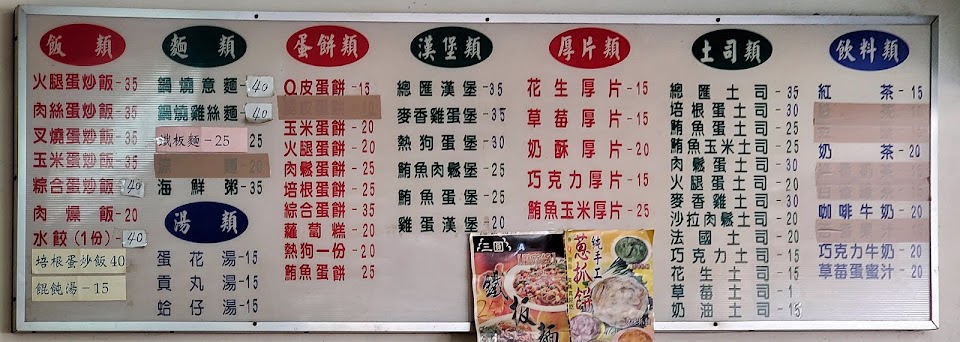 飯類
火腿蛋炒飯-35
肉絲蛋炒飯-35
叉燒蛋炒飯-35
玉米蛋炒飯-35
綜合蛋炒飯 40
肉燥飯-20
水餃(1份) 40
培根蛋炒飯 40
餛飩湯-15
麵類
鍋燒意麵 40
鍋燒雞絲麵 40
鐵板麵-25 25
20
海鮮粥-35
湯類
蛋花湯-15
貢丸湯-15
蛤仔湯-15
蛋餅類
Q皮蛋餅-15
玉米蛋餅-20
火腿蛋餅-20
肉鬆蛋餅-25
培根蛋餅-25
綜合蛋餅-35
蘿蔔糕-20
熱狗一份-20
鮪魚蛋餅-25
漢堡類
總匯漢堡-35
麥香雞蛋堡-35
熱狗蛋堡-30
鮪魚肉鬆堡-25
鮪魚蛋堡-25
雞蛋漢堡-20
厚片類
花生厚片-15
草莓厚片-15
奶酥厚片-20
巧克力厚片-15
鮪魚玉米厚片-25
土司類
總匯土司-35
培根蛋土司-30
鮪魚蛋土司-25
鮪魚玉米土司-25
肉鬆蛋土司-30
火腿蛋土司-20
麥香雞土司-30
沙拉肉鬆土司-20
法國土司-20
巧克力土司-15
花生土司-15
草莓土司-1
奶油土司-15
飲料類
紅茶-15
奶茶-20
咖啡牛奶-20
巧克力牛奶-20
草莓蛋蜜汁-20
三圓
鐵板麵
純手工
蔥抓餅